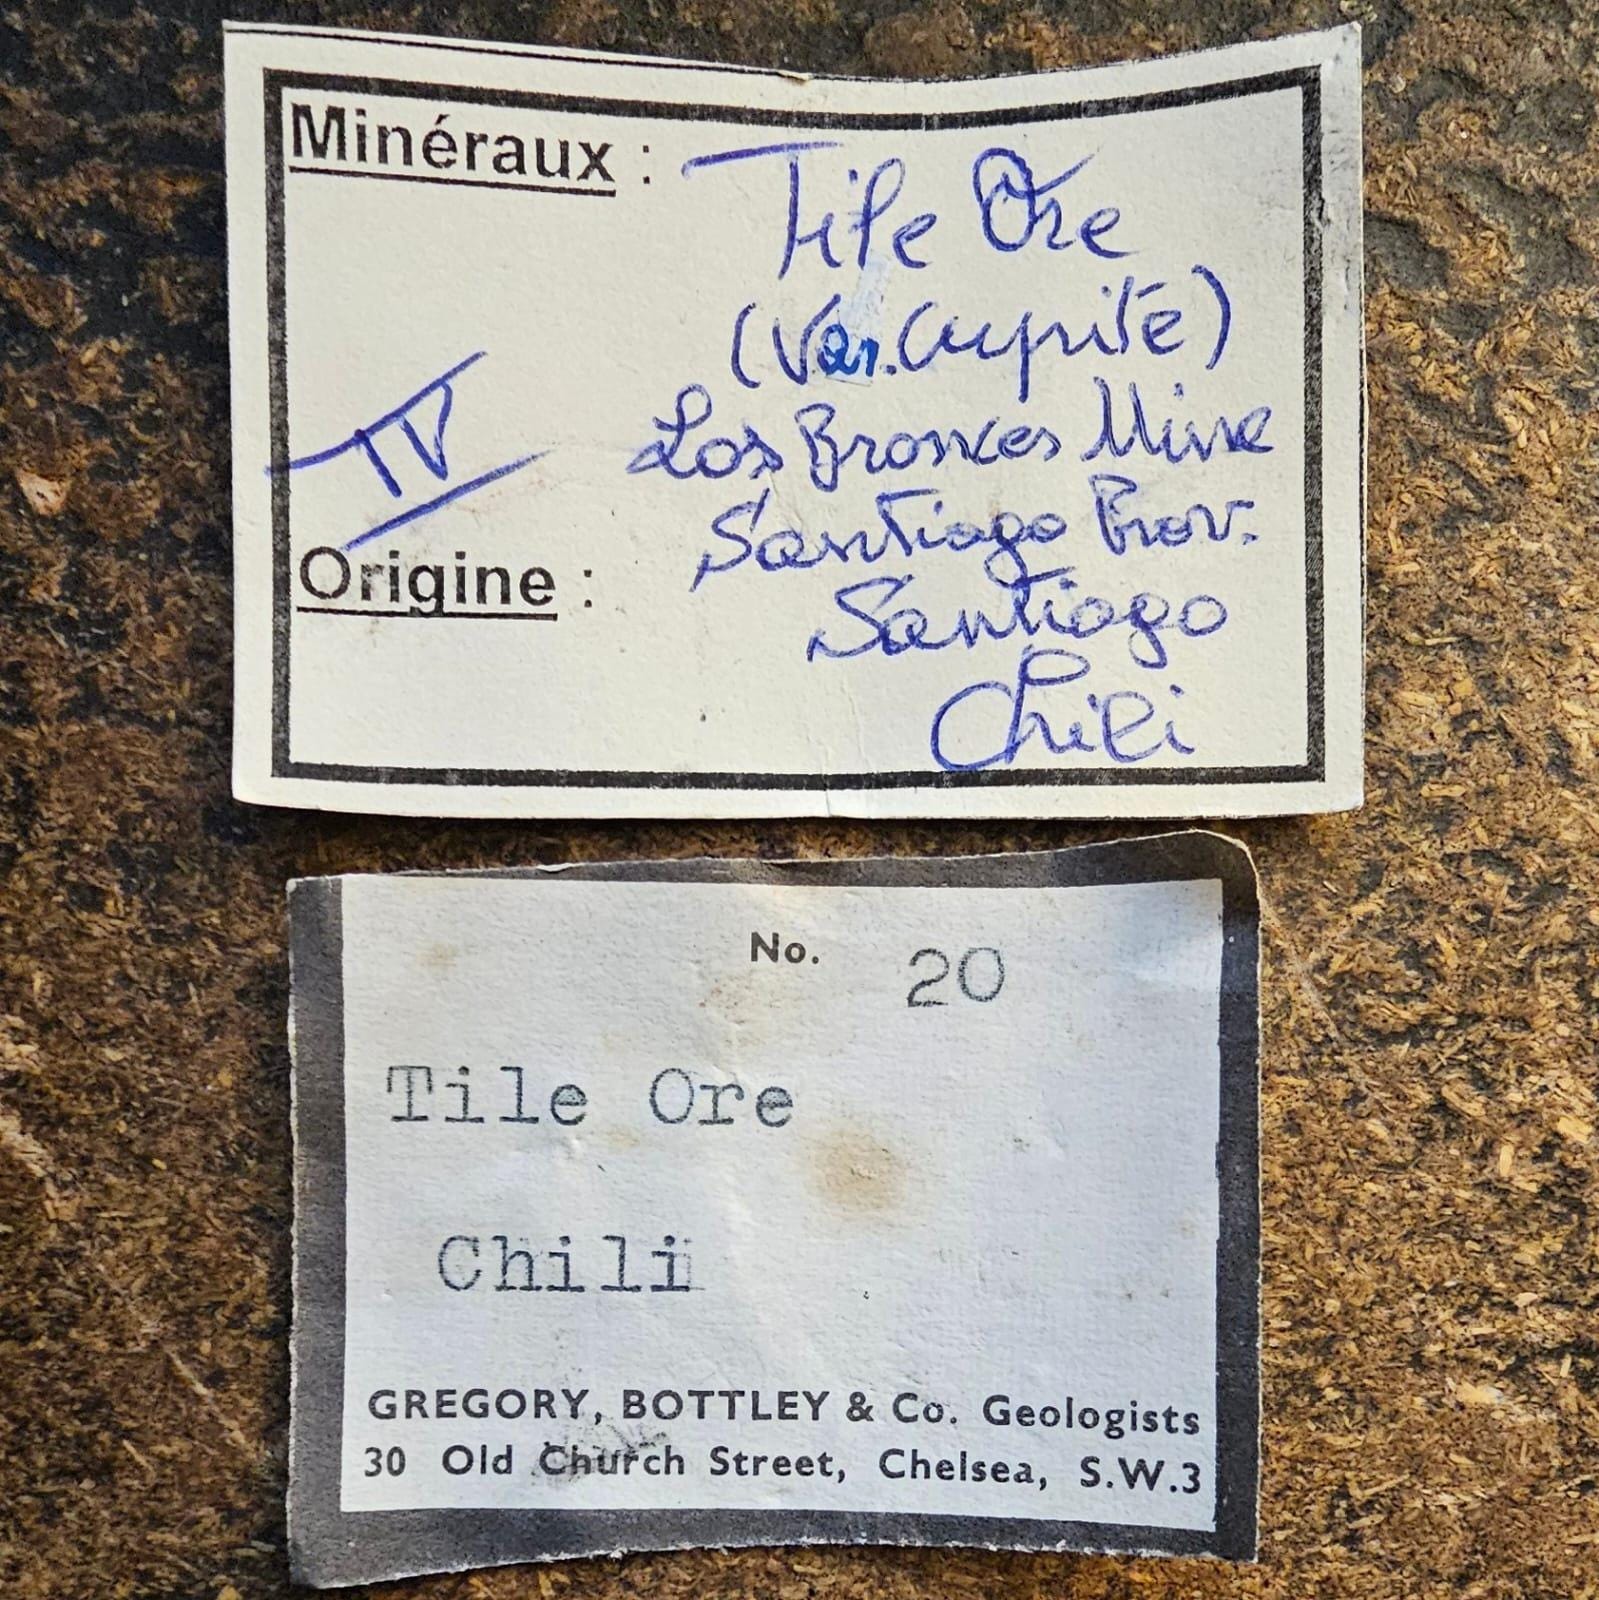 Minéraux : Tile Ore
(Var. Cuprite)
Los Bronces Mine
IV
Santiago Prov.
Origine :
Santiago
Chili
No. 20
Tile Ore
Chili
GREGORY, BOTTLEY & Co. Geologists
30 Old Church Street, Chelsea, S.W.3